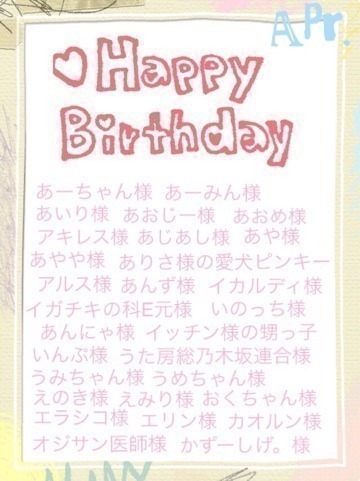 Apr.
♡Happy
Birthday
あーちゃん様 あーみん様
あいり様 あおじー様 あおめ様
アキレス様 あじあし様 あや様
あやや様 ありさ様の愛犬ピンキー
アルス様 あんず様 イカルディ様
イガチキの科E元様 いのっち様
あんにゃ様 イッチン様の甥っ子
いんぷ様 うた房総乃木坂連合様
うみちゃん様 うめちゃん様
えのき様 えみり様 おくちゃん様
エラシコ様 エリン様 カオルン様
オジサン医師様 かずーしげ。様